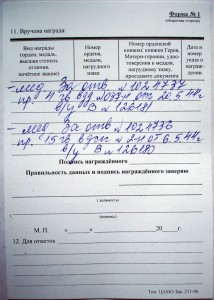 Форма № 1
(оборотная сторона)
11. Вручена награда:
Вид награды
(орден, медаль,
высшая степень
отличия,
почётное звание)
Номер
ордена,
медали,
нагрудного
знака
Номер орденской
книжки, книжки Героя,
Матери-героини, удос-
товерения к медали,
нагрудному знаку,
проездного документа
Дата и
номер
указа о
награж-
дении
– мед За отв № 1024737
пр 4 вдд № 037/н от 20.5.44г
б/у В № 126181
– мед За отв № 1024736
пр 15 гв вдсп № 21 от 6.5.44г
б/у В № 126180
Подпись награждённого
Правильность данных и подпись награждённого заверяю
(должность)
(подпись)
М. П. « » 20 г.
12. Для отметок
Тип. ЦАМО Зак. 231-06